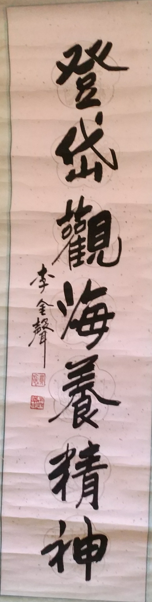 登岱觀海養精神
李金聲